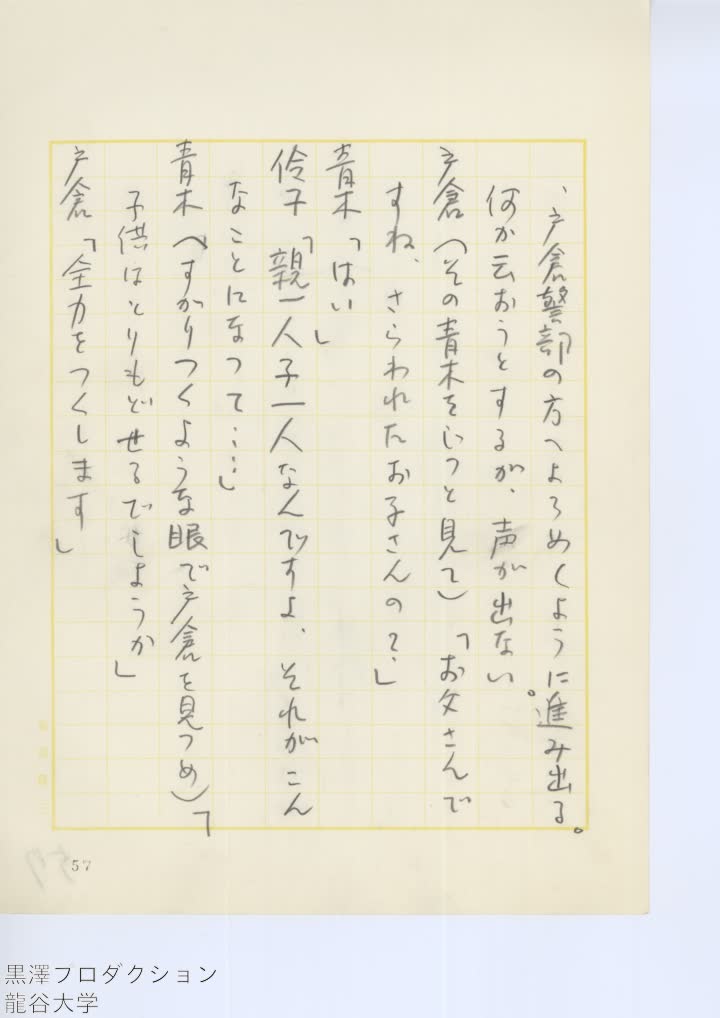 、戸倉警部の方へよろめくように進み出る。
何か云おうとするが、声が出ない。
戸倉(その青木をじつと見て)「お父さんで
すね、さらわれたお子さんの?」
青木「はい」
伶子「親一人子一人なんですよ、それがこん
なことになつて……」
青木(すがりつくような眼で戸倉を見つめ)「
子供はとりもどせるでしようか」
戸倉「全力をつくします」
57
57
黒澤プロダクション
龍谷大学